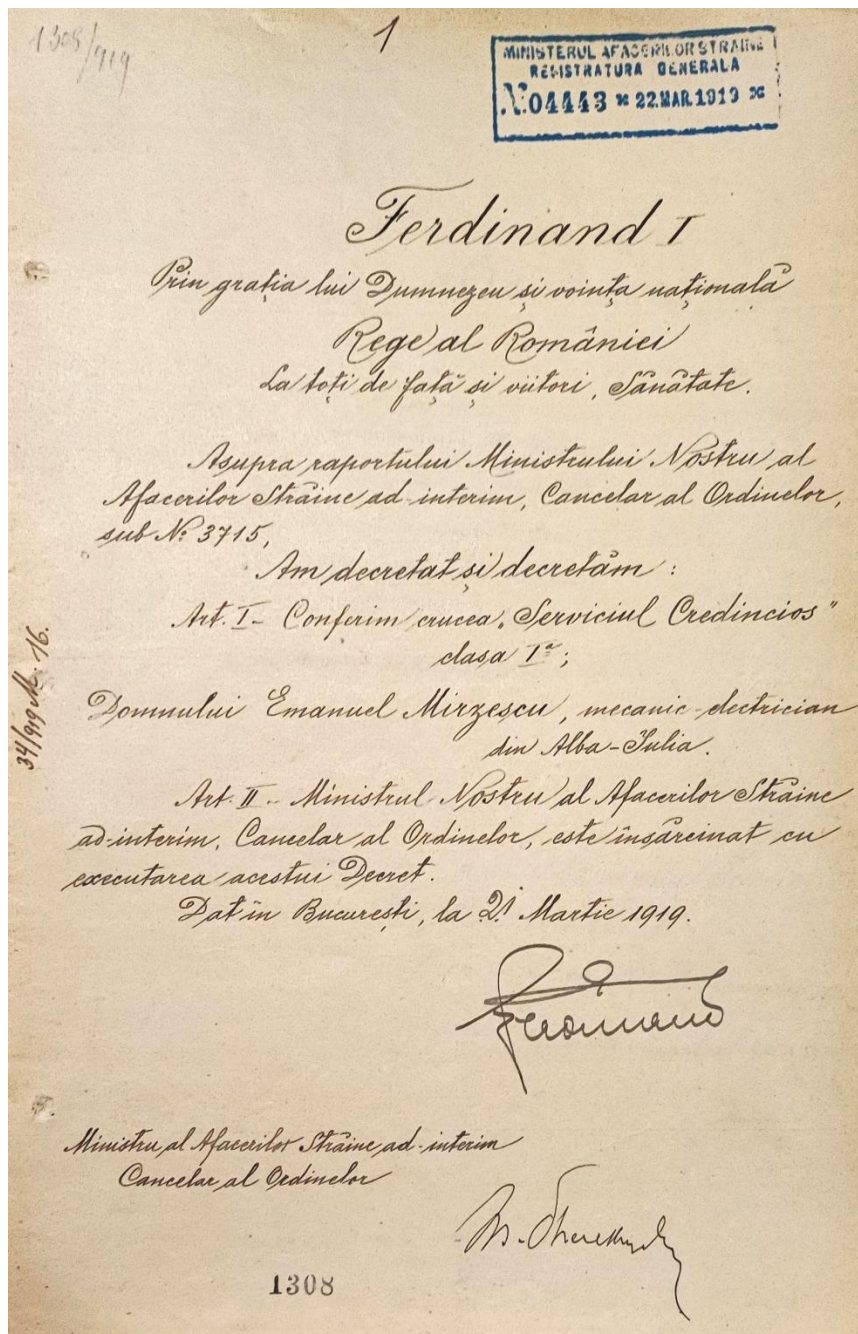 1308/919
1
MINISTERUL AFACERILOR STRAINE
REGISTRATURA GENERALA
No 04443 * 22.MAR.1919 *
Ferdinand I
Prin grația lui Dumnezeu și voința națională
Rege al României
La toți de față și viitori, Sănătate.
Asupra raportului Ministrului Nostru al
Afacerilor Străine ad-interim, Cancelar al Ordinelor,
sub No 3715,
Am decretat și decretăm :
Art. I - Conferim crucea „Serviciul Credincios”
clasa Iª;
Domnului Emanuel Mirzescu, mecanic-electrician
din Alba-Iulia.
34/919 M. 16.
Art. II - Ministrul Nostru al Afacerilor Străine
ad-interim, Cancelar al Ordinelor, este însărcinat cu
executarea acestui Decret.
Dat în București, la 21 Martie 1919.
Ferdinand
Ministru al Afacerilor Străine ad-interim
Cancelar al Ordinelor
1308